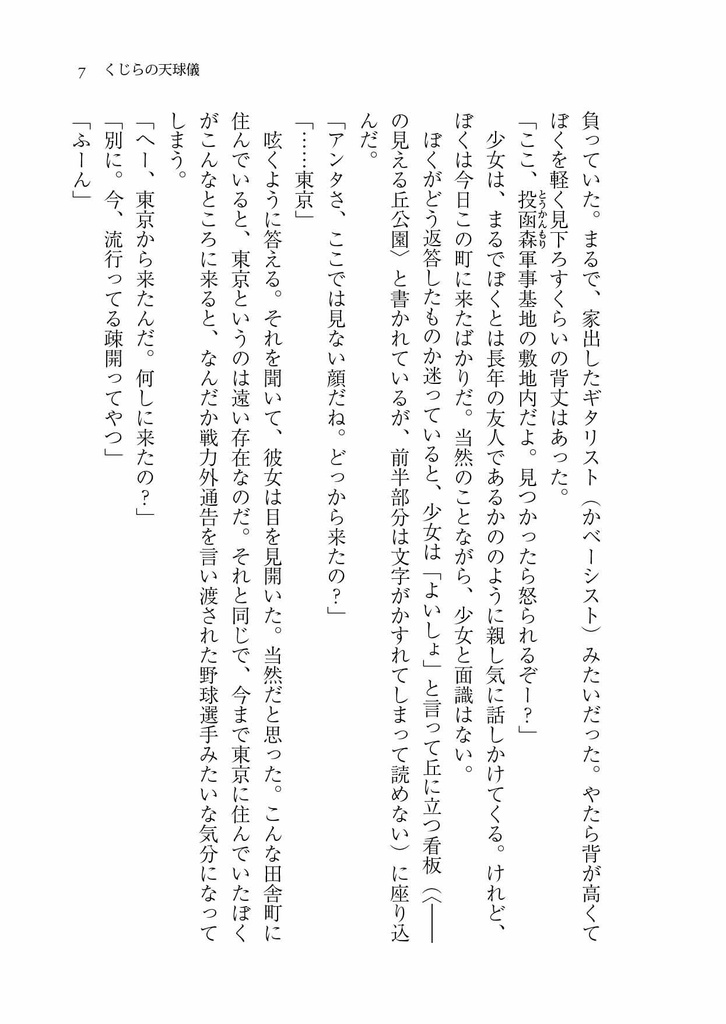 7　くじらの天球儀
負っていた。まるで、家出したギタリスト（かベーシスト）みたいだった。やたら背が高くて
ぼくを軽く見下ろすくらいの背丈はあった。
「ここ、投函森軍事基地の敷地内だよ。見つかったら怒られるぞー？」
とうかんもり
　少女は、まるでぼくとは長年の友人であるかののように親し気に話しかけてくる。けれど、
ぼくは今日この町に来たばかりだ。当然のことながら、少女と面識はない。
　ぼくがどう返答したものか迷っていると、少女は「よいしょ」と言って丘に立つ看板（〈――
の見える丘公園〉と書かれているが、前半部分は文字がかすれてしまって読めない）に座り込
んだ。
「アンタさ、ここでは見ない顔だね。どっから来たの？」
「……東京」
　呟くように答える。それを聞いて、彼女は目を見開いた。当然だと思った。こんな田舎町に
住んでいると、東京というのは遠い存在なのだ。それと同じで、今まで東京に住んでいたぼく
がこんなところに来ると、なんだか戦力外通告を言い渡された野球選手みたいな気分になって
しまう。
「へー、東京から来たんだ。何しに来たの？」
「別に。今、流行ってる疎開ってやつ」
「ふーん」